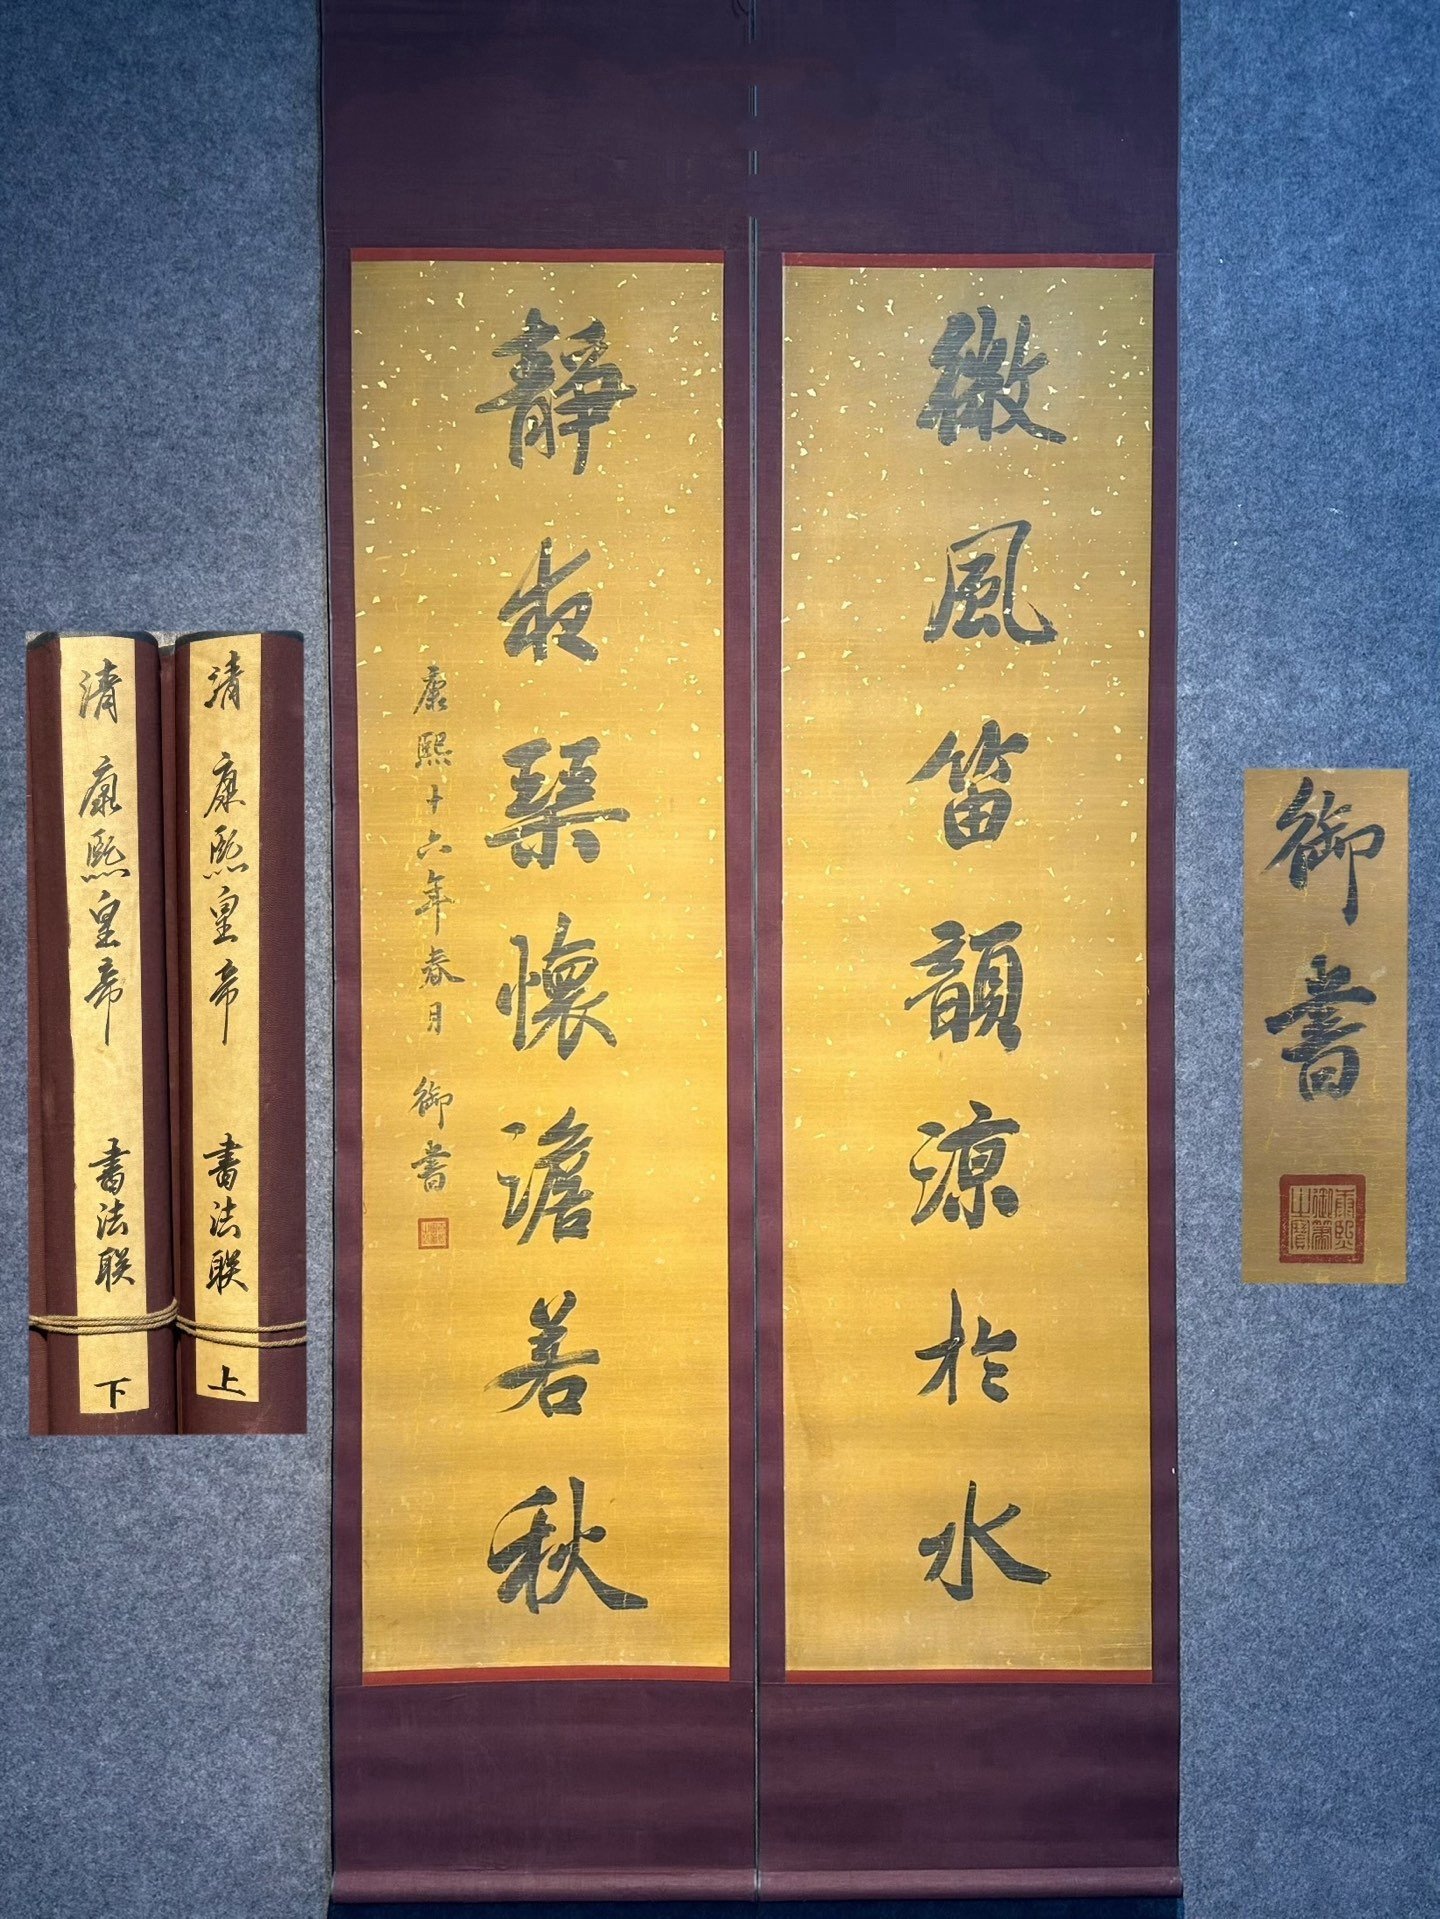 微風笛韻凉於水
靜夜琴懷澹若秋
康熙十六年春月 御書
康熙御筆之寶
清 康熙皇帝 書法联 上
清 康熙皇帝 書法联 下
御書
康熙御筆之寶